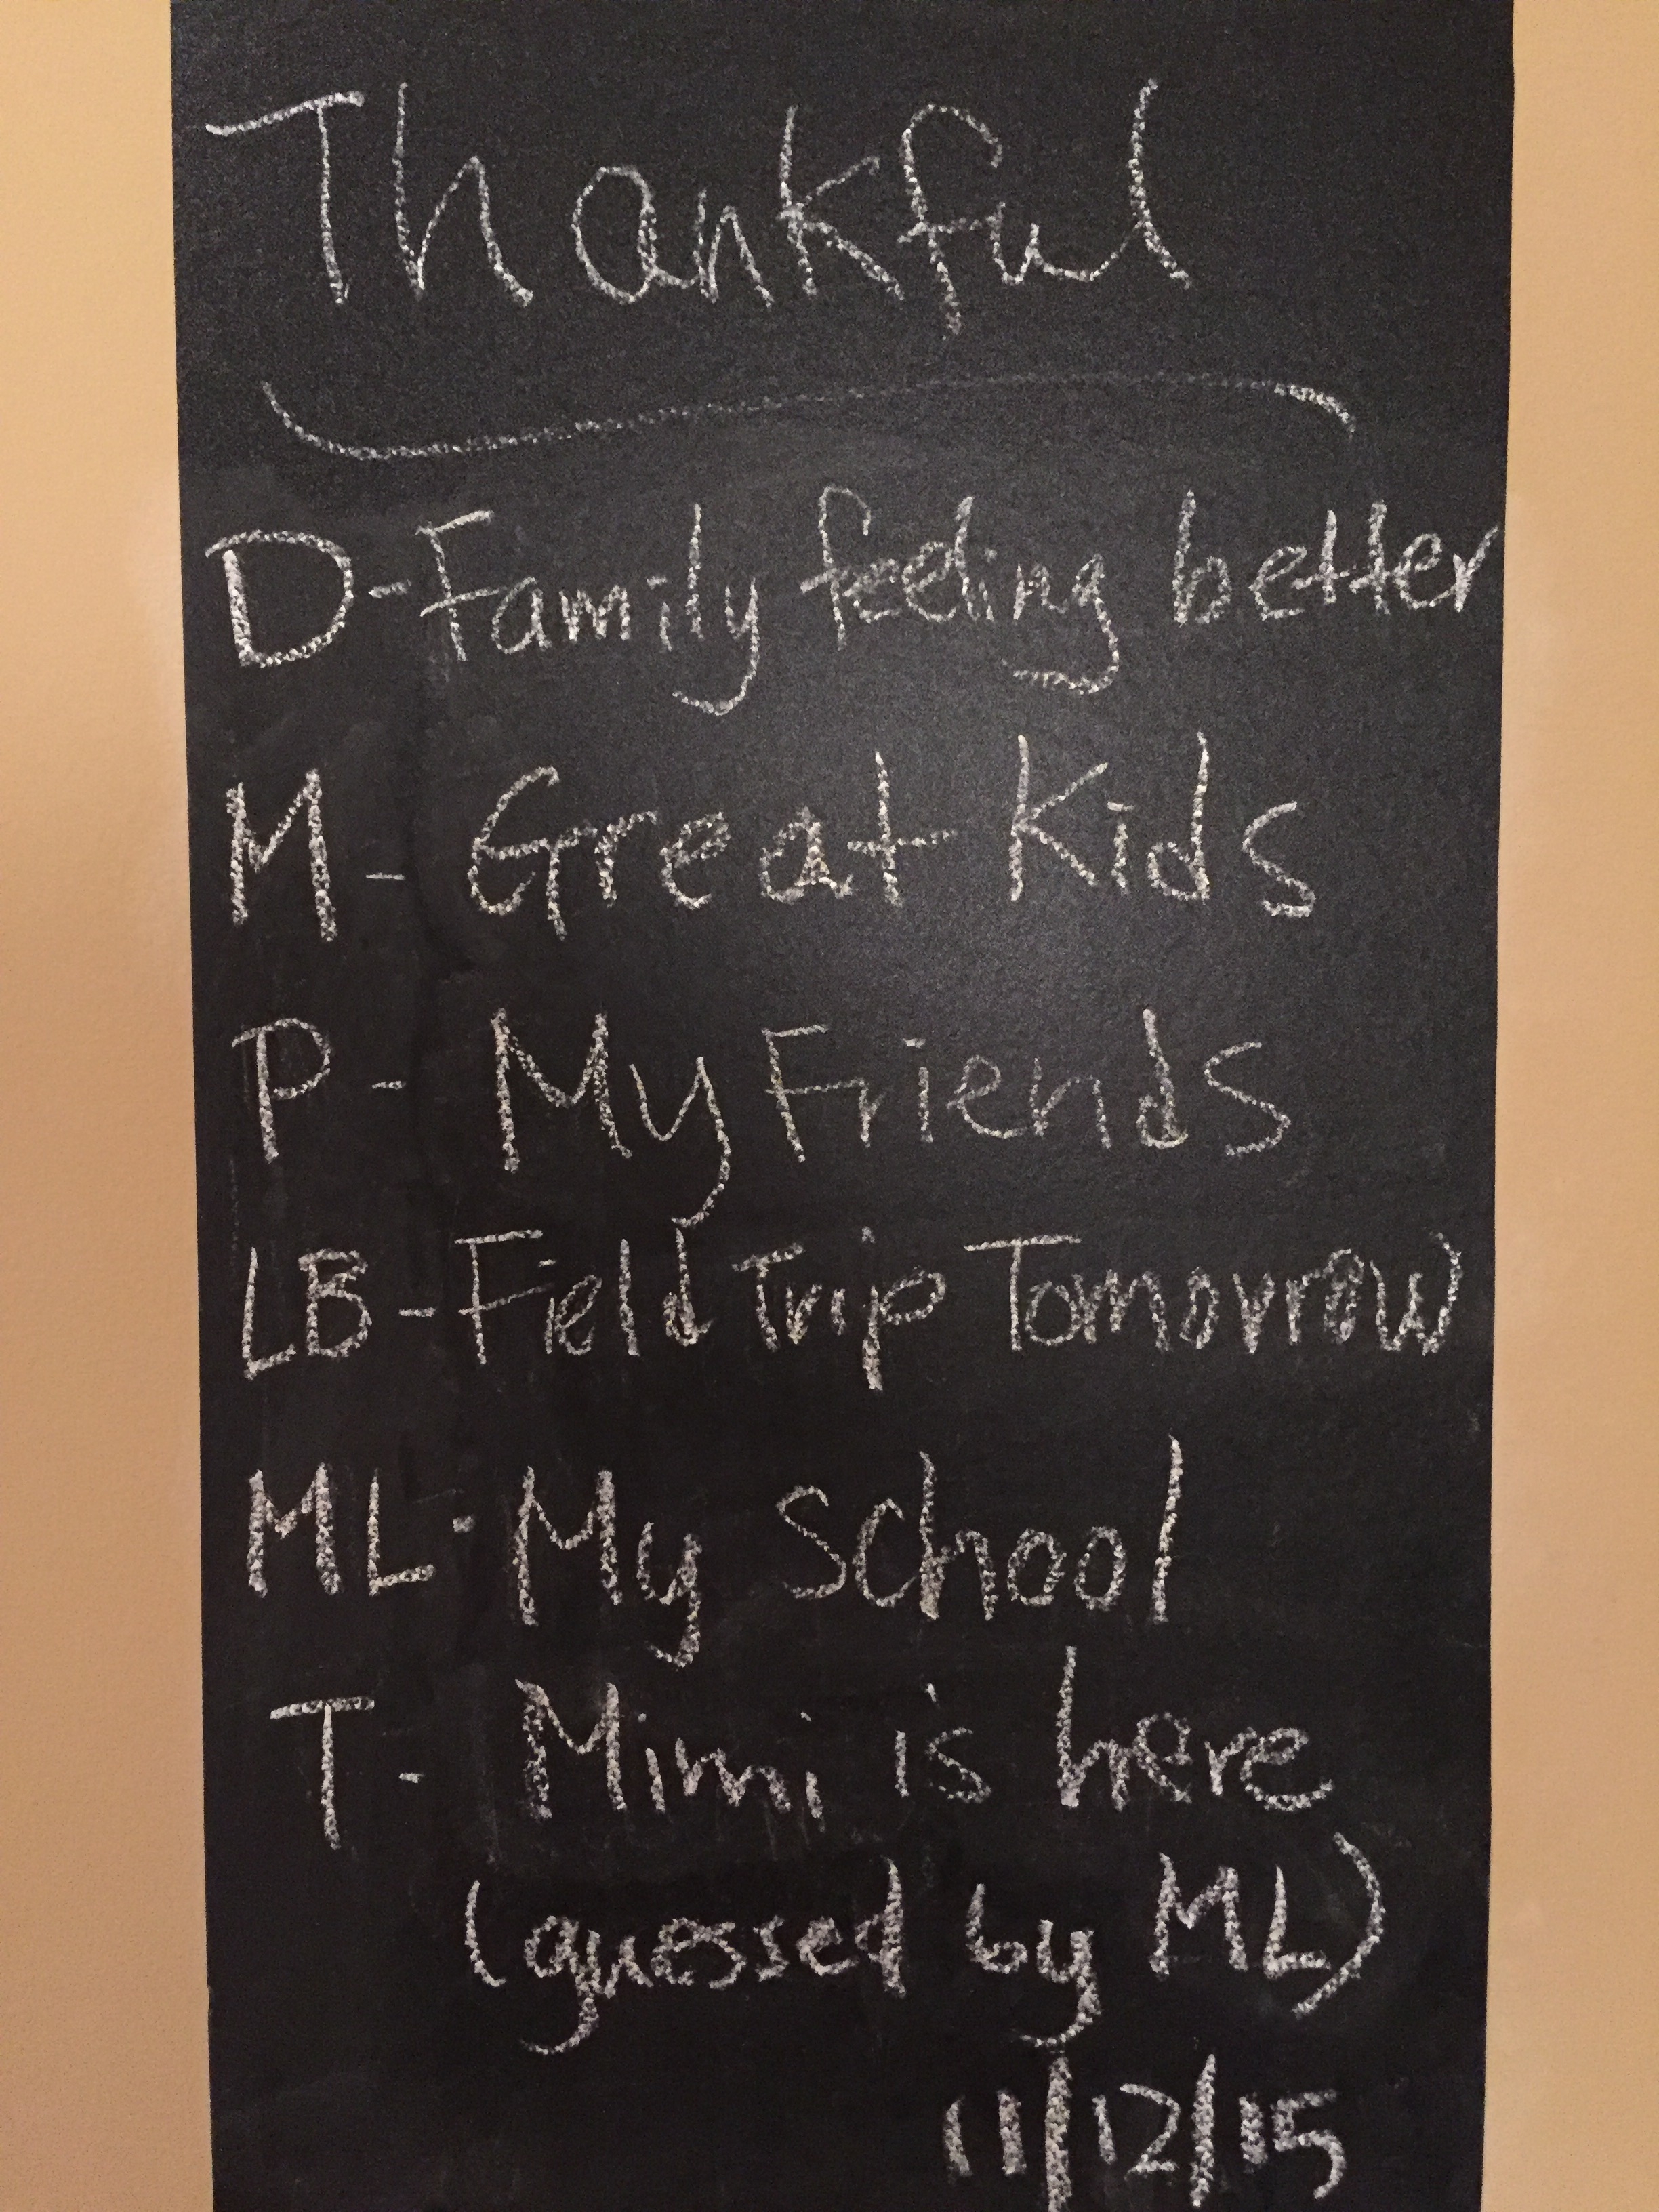 Thankful
D-Family feeling better
M- Great Kids
P- My Friends
LB-Field Trip Tomorrow
ML- My School
T- Mimi is here
(guessed by ML)
11/12/15